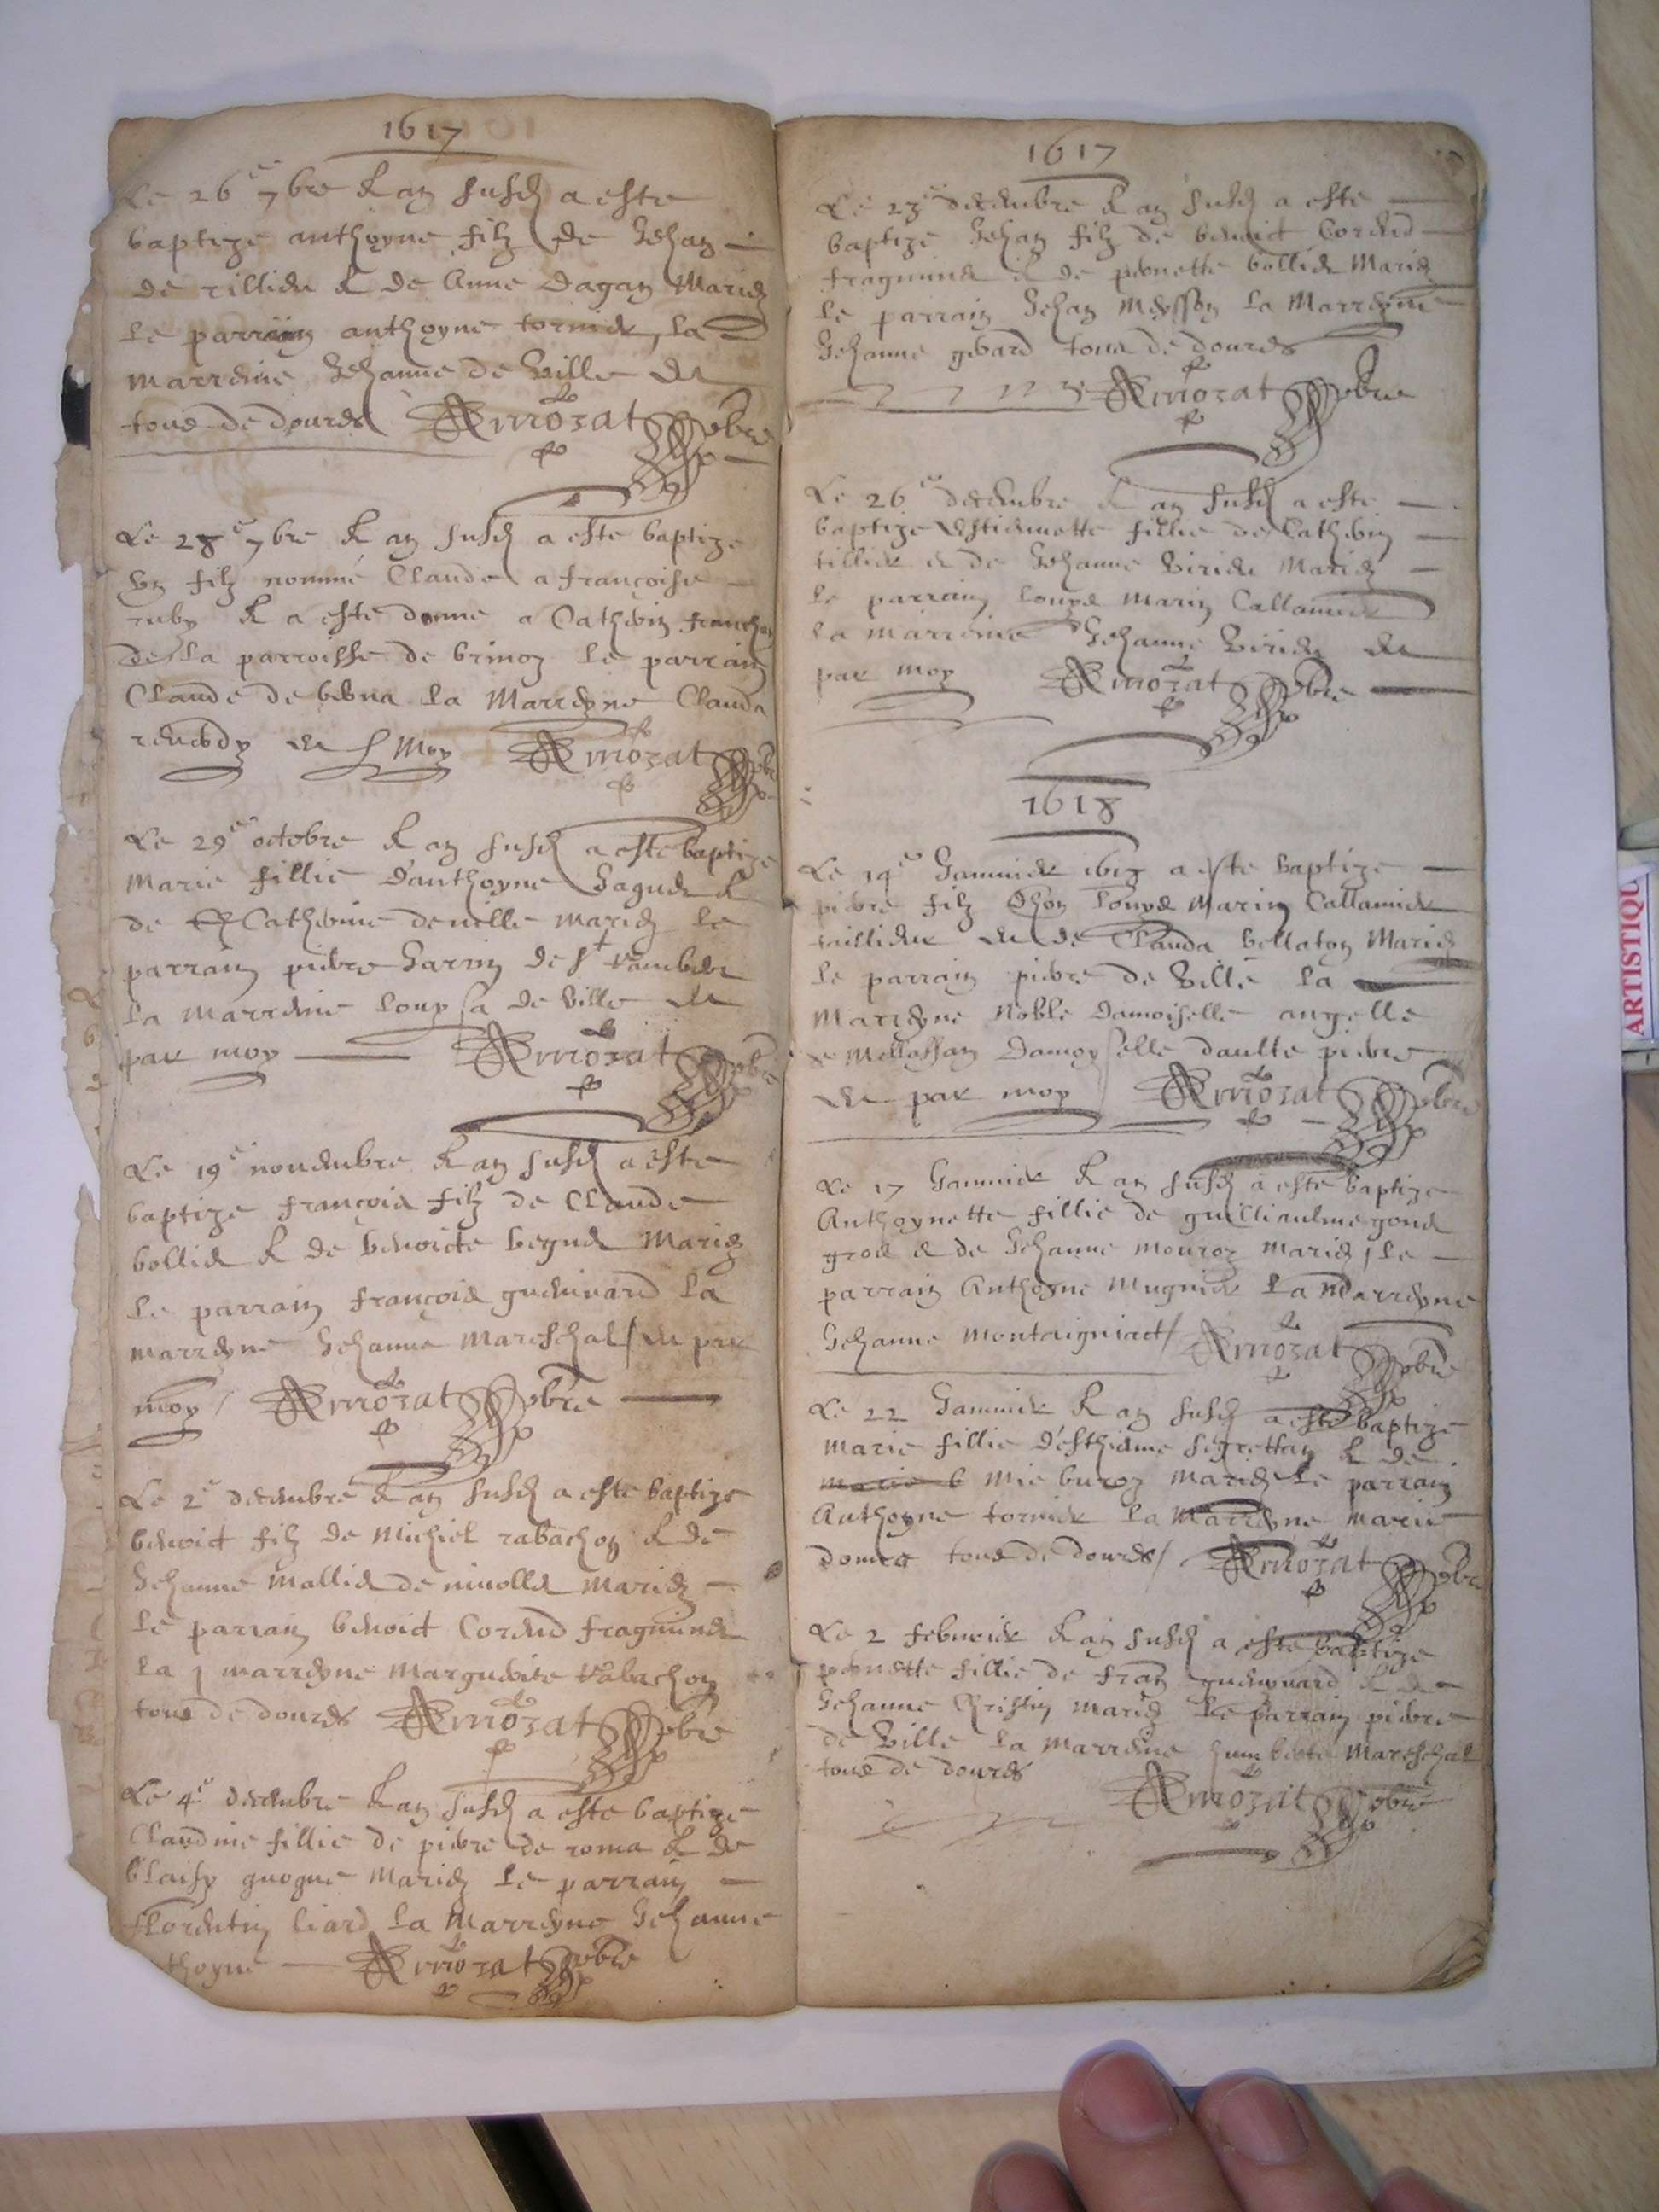 1617
Le 26e 7bre & an susd a este
baptize anthoyne filz de Jehan
de rillieu & de Anne dagan Mariez
le parrain anthoyne tornier, la
marreine Jehanne de Ville &c
tous de dours Armozat pbre
Le 28e 7bre & an susd a este baptize
un filz nomme Claude a francoise
ruby & a este donne a Catherin
de la parroisse de brinoz le parrain
Claude de la Marreyne Clauda
& Moy Armozat pbre
Le 29e octobre & an susd a este baptize
Marie fillie d'anthoyne &
de Catherine deville mariez le
parrain pierre Garrin de St rambert
la marreine loupsa de Ville &c
par moy Armozat pbre
Le 19e nouembre & an susd a este
baptize françois filz de Claude
bollie & de benoicte begue Mariez
le parrain françois gueniuard la
marreyne Jehanne Mareschal / &c par
moy / Armozat pbre
Le 2e decembre & an susd a este baptize
benoict filz de Michiel rabachon & de
Jehanne mallie de niuolle mariez
le parrain benoict Cordeud
la marreyne Marguerite rabachon
tous de dours Armozat pbre
Le 4e decembre & an susd a este baptize
Claudine fillie de pierre de roma & de
blaisy guogue Mariez le parrain
florentin liard la Marreyne Jehanne
thoyne Armozat pbre
1617
Le 23e decembre & an susd a este
baptize Jehan filz de benoict Cordeud
& de pernette bollie Mariez
le parrain Jehan Meysson la Marreyne
Jehanne girard tous de dours
Armozat pbre
Le 26e decembre & an susd a este
baptize estiennette fillie de Catherin
tillier & de Jehanne Mariez
le parrain louys Marin Callamier
la marreine Jehanne &c
par moy Armozat pbre
1618
Le 14e Januier 1618 a este baptize
pierre filz louys Marin Callamier
taillieur & de Clauda bellaton Mariez
le parrain pierre de Ville la
Marreyne Noble damoiselle angelle
de Mellassan damoyselle daulte pierre
&c par moy Armozat pbre
Le 17 Januier & an susd a este baptize
Anthoynette fillie de guilliaulme
gros & de Jehanne mouroz mariez, le
parrain Anthoyne Mugnier la Marreyne
Jehanne montaigniact / Armozat pbre
Le 22 Januier & an susd a este baptize
Marie fillie d'esthienne segrettan & de
mie buroz mariez le parrain
Anthoyne tornier la Marreyne marie
tous de dours / Armozat pbre
Le 2 februier & an susd a este baptize
pernette fillie de fran gueniuard & de
Jehanne Christin mariez le parrain pierre
de Ville la Marreine humberte Mareschal
tous de dours
Armozat pbre
ARTISTIQU